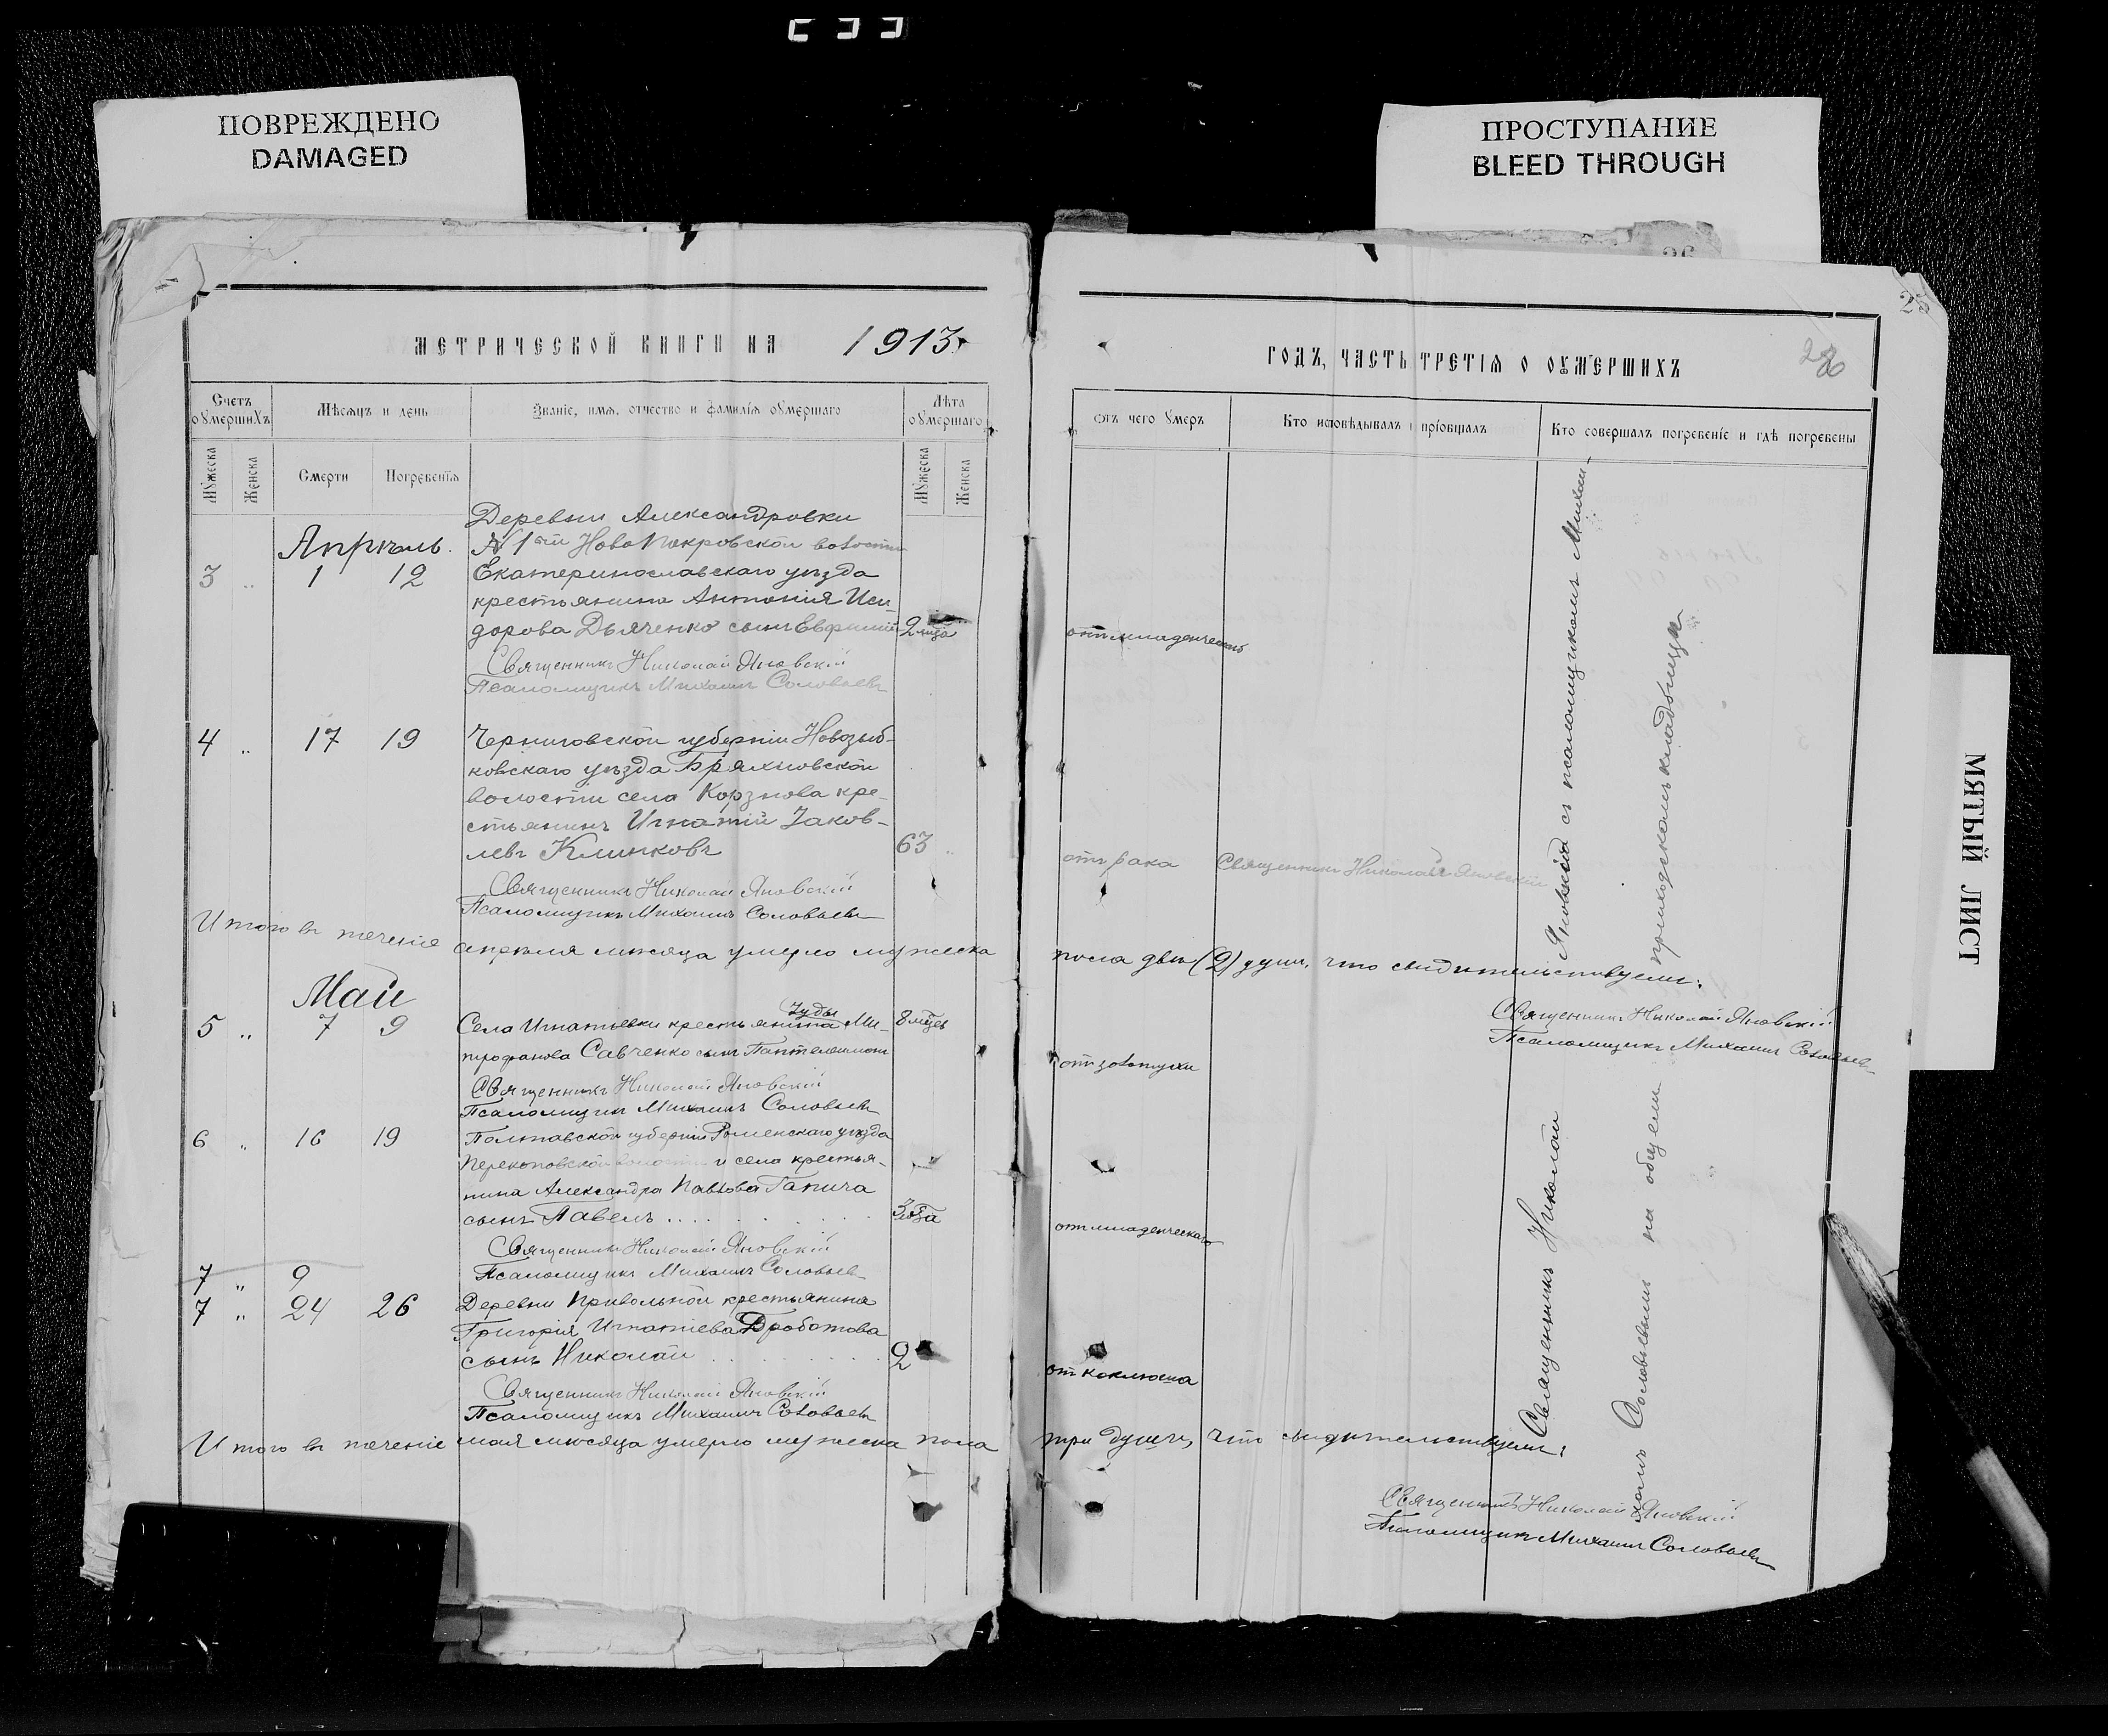 ПОВРЕЖДЕНО
DAMAGED
ПРОСТУПАНИЕ
BLEED THROUGH
МЯТЫЙ ЛИСТ
25
26
МЕТРИЧЕСКОЙ КНИГИ НА 1913
ГОДЪ, ЧАСТЬ ТРЕТІЯ О ОУМЕРШИХЪ
Счетъ оумершихъ
Мѣсяцъ и день
Званіе, имя, отчество и фамилія оумершаго
Лѣта оумершаго
отъ чего умеръ
Кто исповѣдывалъ и пріобщалъ
Кто совершалъ погребеніе и гдѣ погребены
Мужеска
Женска
Смерти
Погребенія
Мужеска
Женска
Апрѣль.
Деревни Александровки
№ 1ой Новопокровской волости
3 " 1 12 Екатеринославскаго уѣзда
крестьянина Антонія Иси-
дорова Дьяченко сынъ Евфимій 2 мца от младенческ
Священникъ Николай Яновскій
Псаломщикъ Михаилъ Соловьевъ
4 " 17 19 Черниговской губерніи Новозыб-
ковскаго уѣзда Бряхловской
волости села Корзнова кре-
стьянинъ Игнатій Іаков-
левъ Климковъ 63 " отъ рака Священникъ Николай Яновскій
Священникъ Николай Яновскій
Псаломщикъ Михаилъ Соловьевъ
Итого въ теченіе апрѣля мѣсяца умерло мужеска пола двѣ (2) души, что свидѣтельствуемъ:
Священникъ Николай Яновскій
Псаломщикъ Михаилъ Соловьевъ
Май
Іуды
5 " 7 9 Села Игнатьевки крестьянина Ми- 8 мцевъ
трофанова Савченко сынъ Пантелеимонъ от золотухи
Священникъ Николай Яновскій
Псаломщикъ Михаилъ Соловьевъ
6 " 16 19 Полтавской губерніи Роменскаго уѣзда
Перекоповской волости и села крестья-
нина Александра Павлова Гапича
сынъ Павелъ 3 года от младенческаго
Священникъ Николай Яновскій
Псаломщикъ Михаилъ Соловьевъ
7 " 9
7 " 24 26 Деревни Привольной крестьянина
Григорія Игнатіева Дроботова
сынъ Николай 2 от коклюша
Священникъ Николай Яновскій
Псаломщикъ Михаилъ Соловьевъ
Итого въ теченіе мая мѣсяца умерло мужеска пола три души, что свидѣтельствуемъ:
Священникъ Николай Яновскій
Псаломщикъ Михаилъ Соловьевъ
Священникъ Николай Яновскій съ псаломщикомъ Михаи-
ломъ Соловьевымъ на общемъ приходскомъ кладбищѣ